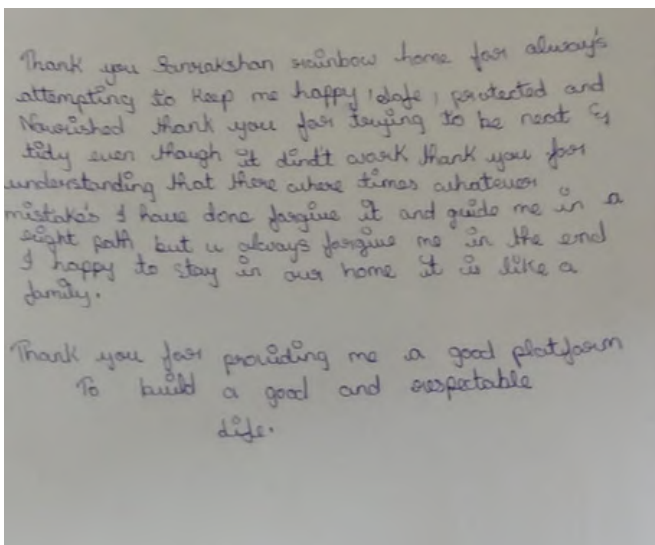 Thank you Sanrakshan rainbow home for always
attempting to keep me happy, safe, protected and
Nourished thank you for trying to be neat &
tidy even though it dind't work thank you for
understanding that there where times whatever
mistake's I have done forgive it and guide me in a
right path but u always forgive me in the end
I happy to stay in our home it is like a
family.
Thank you for providing me a good platform
To build a good and respectable
life.